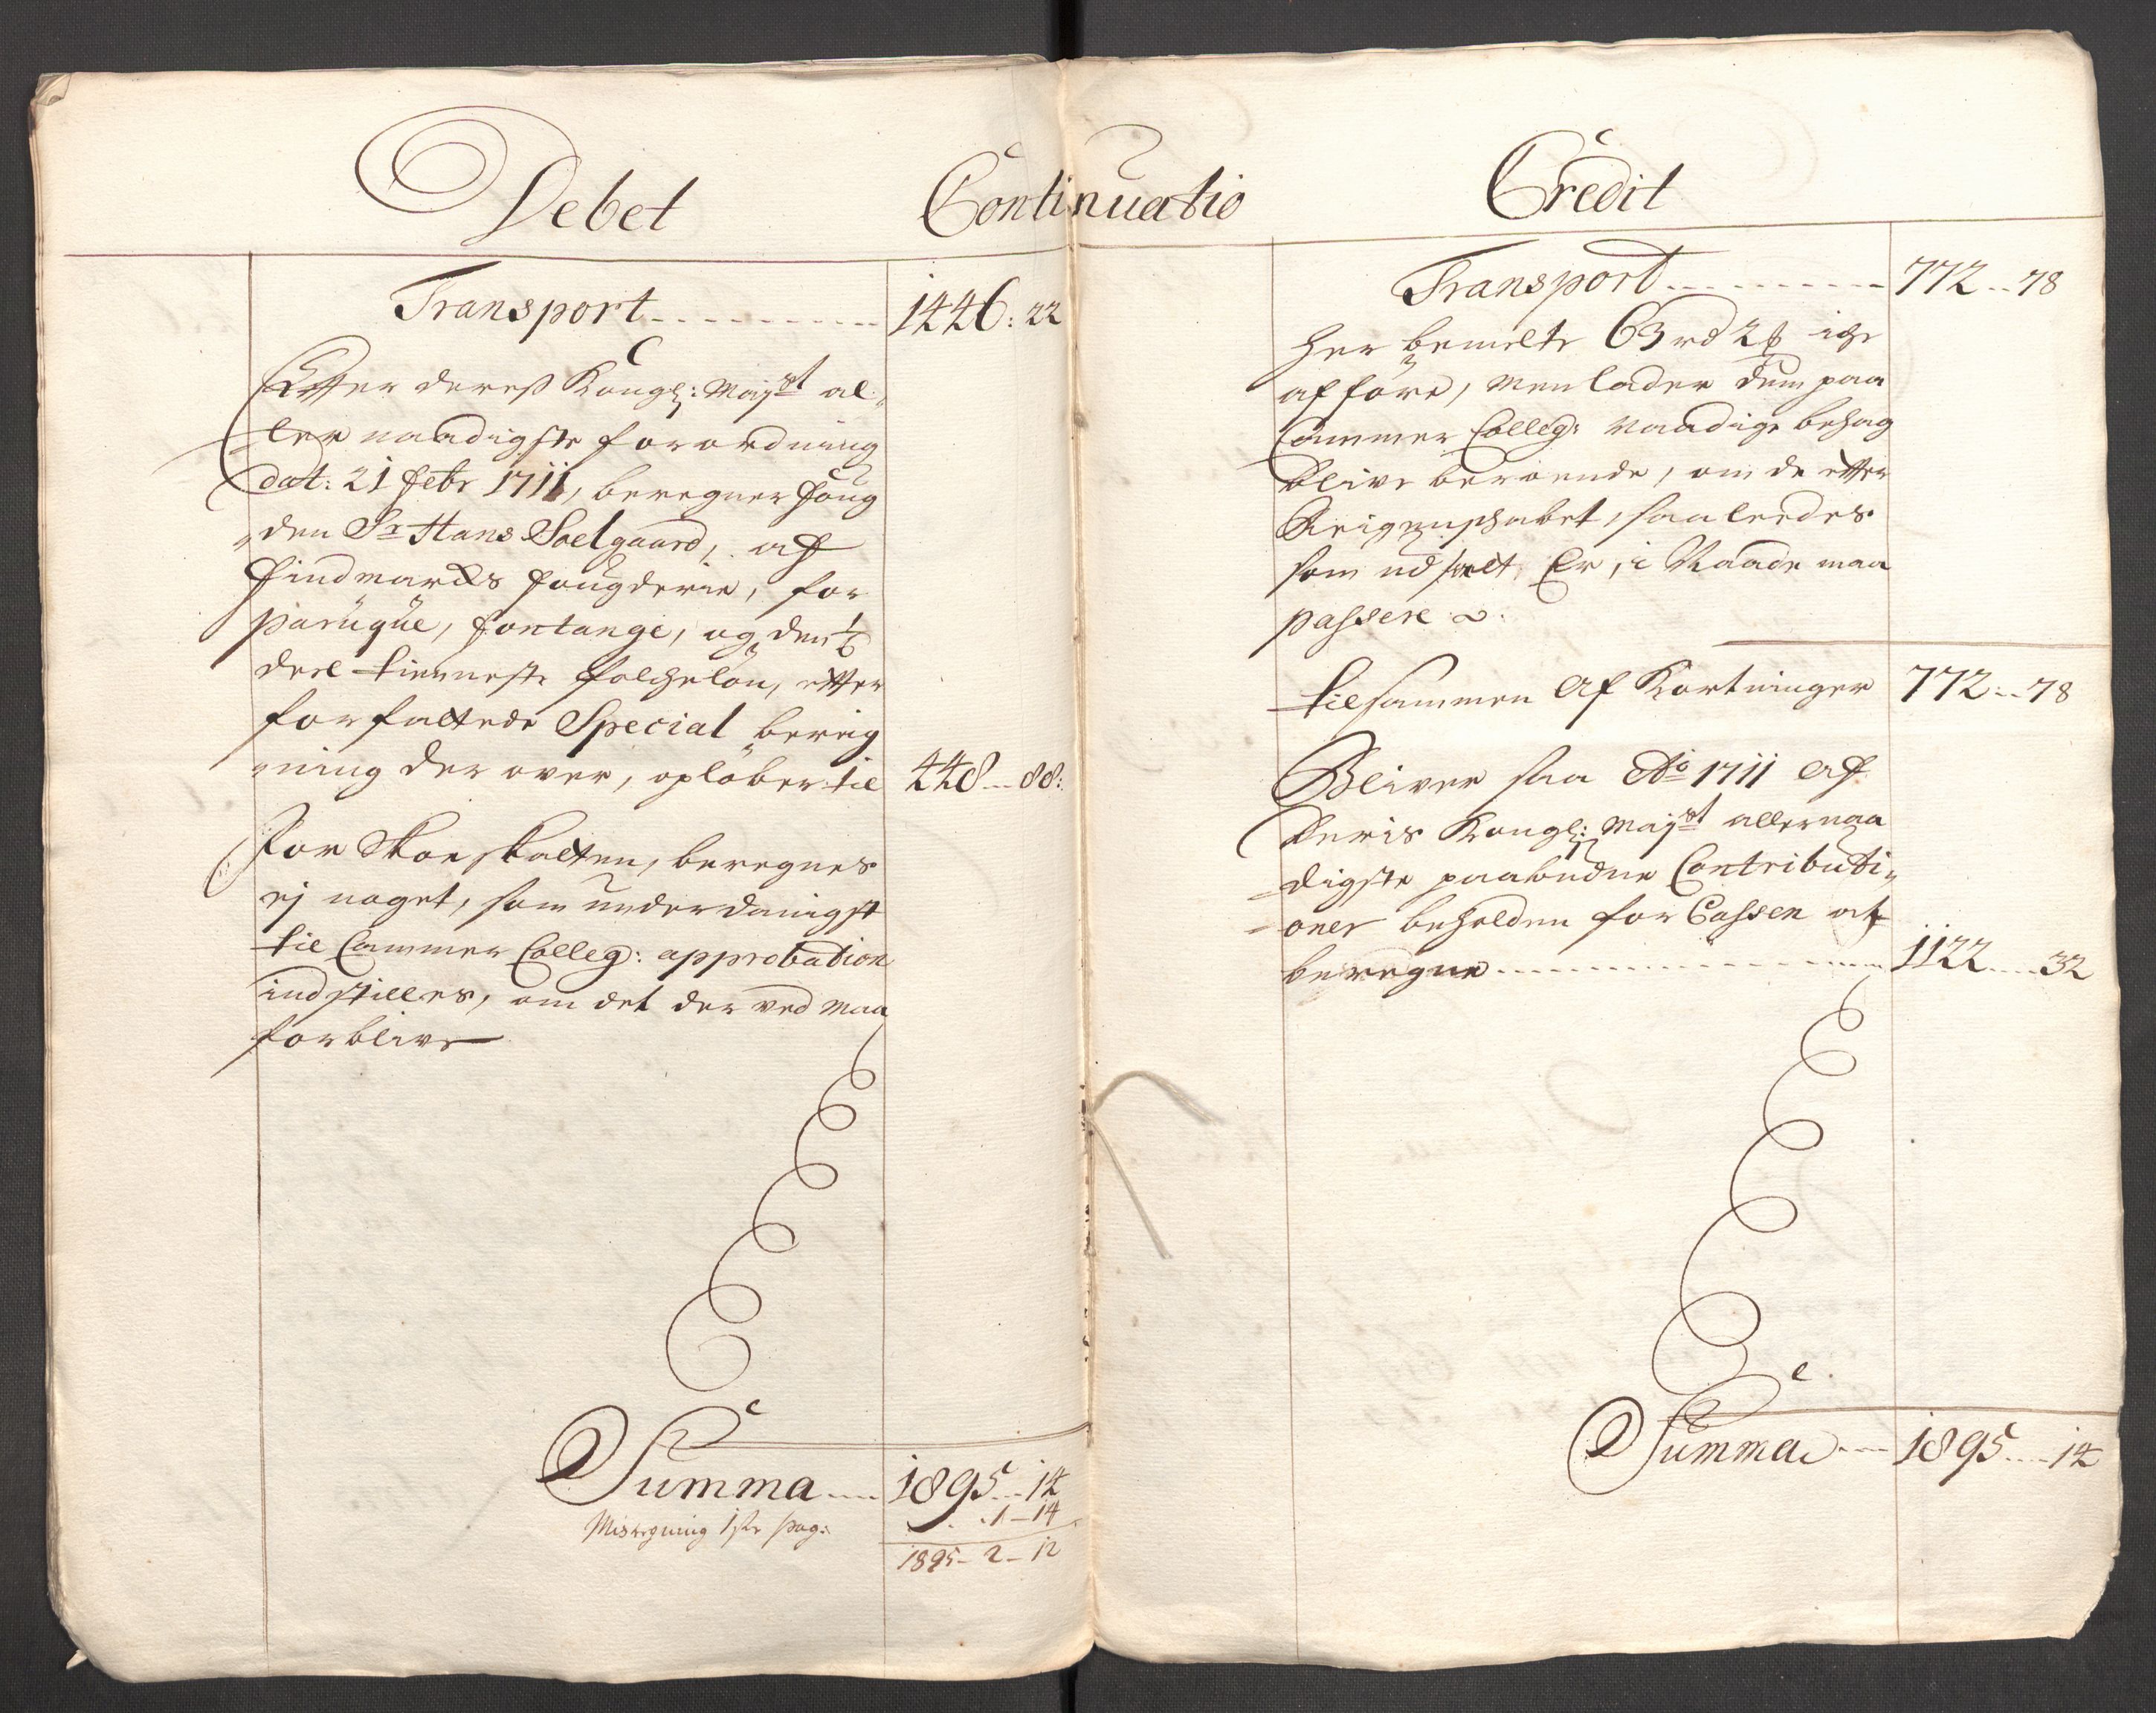 Debet
Continuatio
Credit
Transport - - - - - - - - - 1446: 22
Effter deres Kongl: Mayst al„
„ler naadigste forordning
dat: 21 Febr 1711, beregner foug
„den Sr Hans Soelgaard, af
Findmarkens fougderie, for
paruqüe, fontange, og den 1/6
deel tienneste folchelön, effter
forfattede Special bereig
„ning der over, oplöber til 448 - - 88:
For Skoe skatten, beregnes
ej noget, som underdanigst
til Cammer Colleg: approbation
indstilles, om det der ved maa
forblive
Summa - - - 1895 - - 14
Misregning 1ste pag: 1 - 14
1895 - 2 - 12
Transport - - - - - - - - 772 - - 78
her bemelte 63 rd 2 ß iche
afföre, men lader dem paa
Cammer Colleg: naadige behag
blive beroende, om de effter
Reigenschabet, saaleedes
som udsatt Er, i Naade maa
passere
tilsammen Af Kortninger 772 - - 78
Bliver saa Ao 1711 Af
Deris Kongl: Mayst allernaa
digste paabudne Contributi„
„oner beholden for Cassen at
beregne - - - - - - - - - 1122 - - - 32
Summa - - - 1895 - - - 14